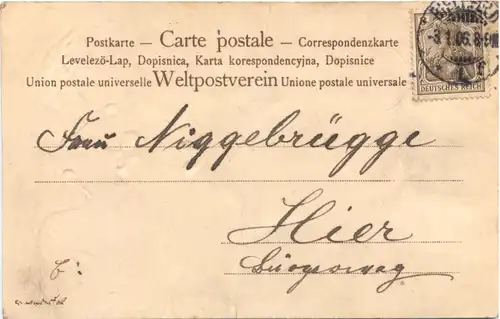 Postkarte — Carte postale — Correspondenzkarte
Levelezö-Lap, Dopisnica, Karta korespondencyjna, Dopisnice
Union postale universelle Weltpostverein Unione postale universale
-3.1.06.8-9
DEUTSCHES REICH
Frau Niggebrügge
Hier